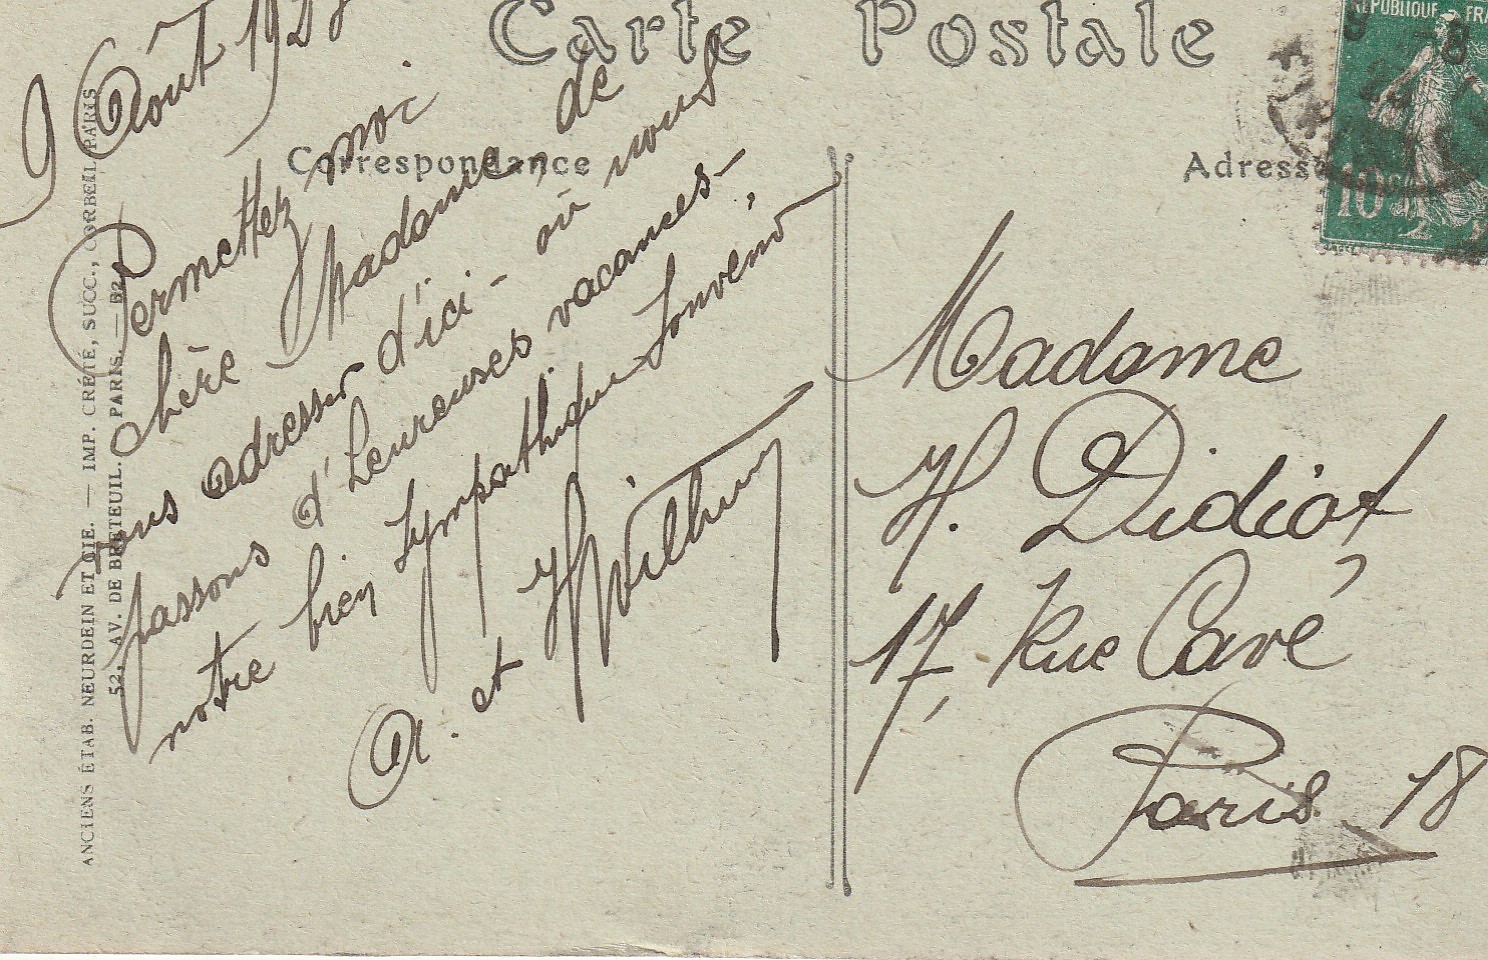 Carte Postale
Correspondance
Adresse
9 Août 1928
Permettez moi
chère Madame, de
vous adresser d'ici - où nous
passons d'heureuses vacances -,
notre bien sympathique souvenir
A. et H.
Madame
H. Didiot
17, Rue Cavé
Paris 18
ANCIENS ÉTAB. NEURDEIN ET CIE. — IMP. CRÉTÉ, SUCC., CORBEIL, PARIS
52, AV. DE BRETEUIL. PARIS. —
RÉPUBLIQUE FRA
10c